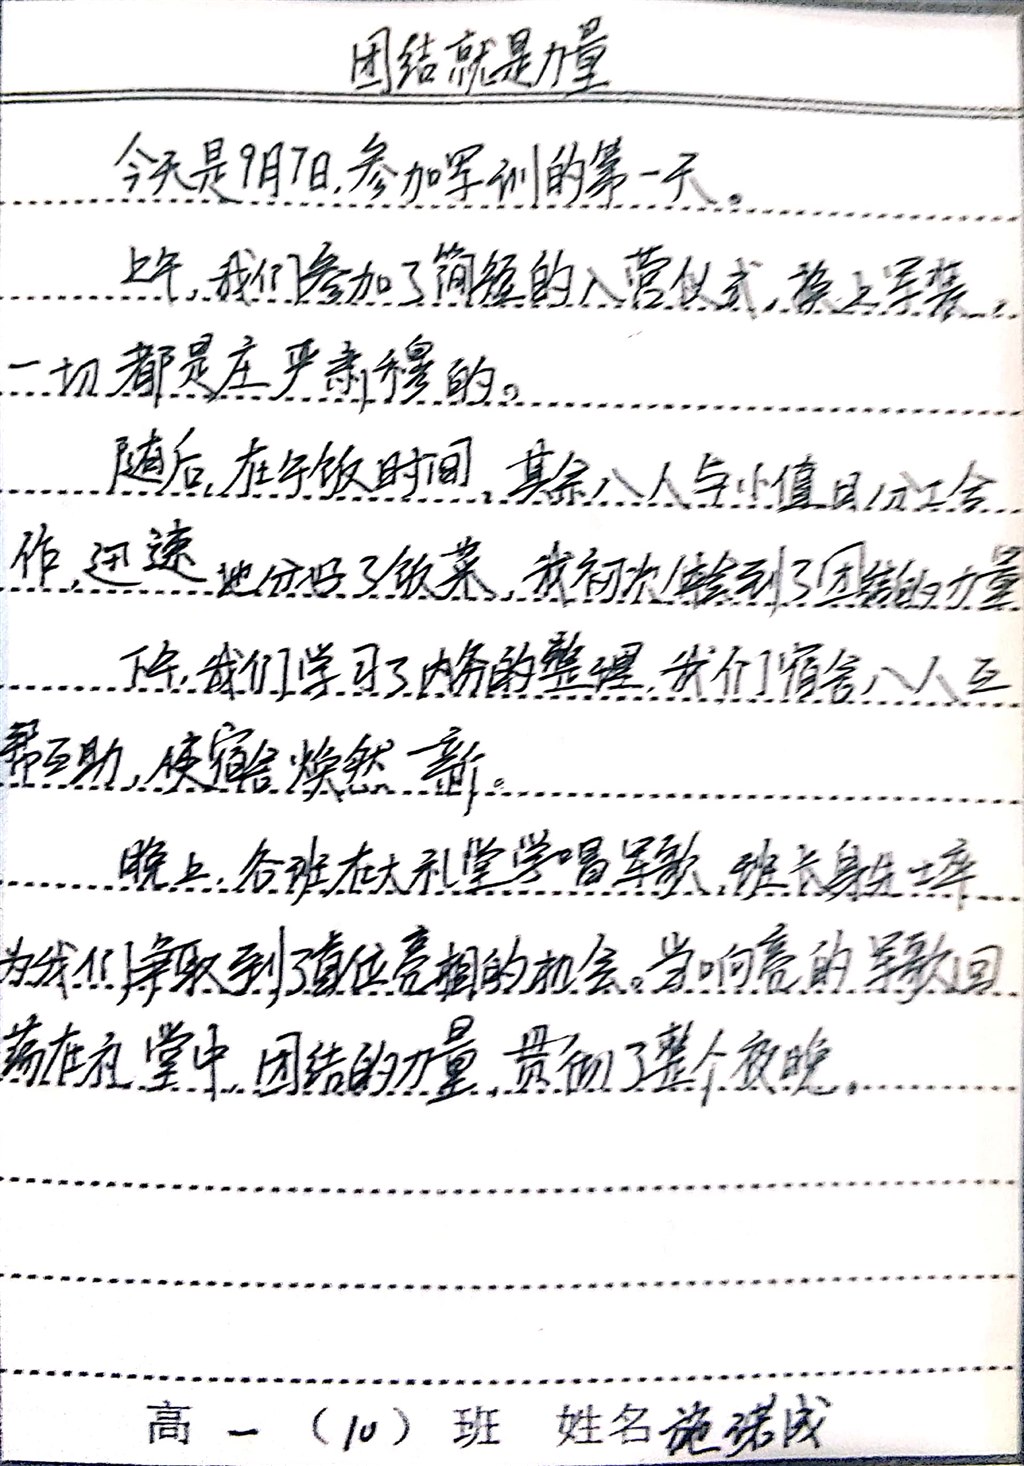 团结就是力量
今天是9月7日,参加军训的第一天。
上午,我们参加了简短的入营仪式,换上军装,
一切都是庄严肃穆的。
随后,在午饭时间,其余八人与小值日分工合
作,迅速地分好了饭菜,我初次体会到了团结的力量
下午,我们学习了内务的整理,我们宿舍八人互
帮互助,使宿舍焕然一新。
晚上,各班在大礼堂学唱军歌,班长身先士卒
为我们争取到了首位亮相的机会。当响亮的军歌回
荡在礼堂中,团结的力量,贯彻了整个夜晚。
高一(10)班 姓名施诺成